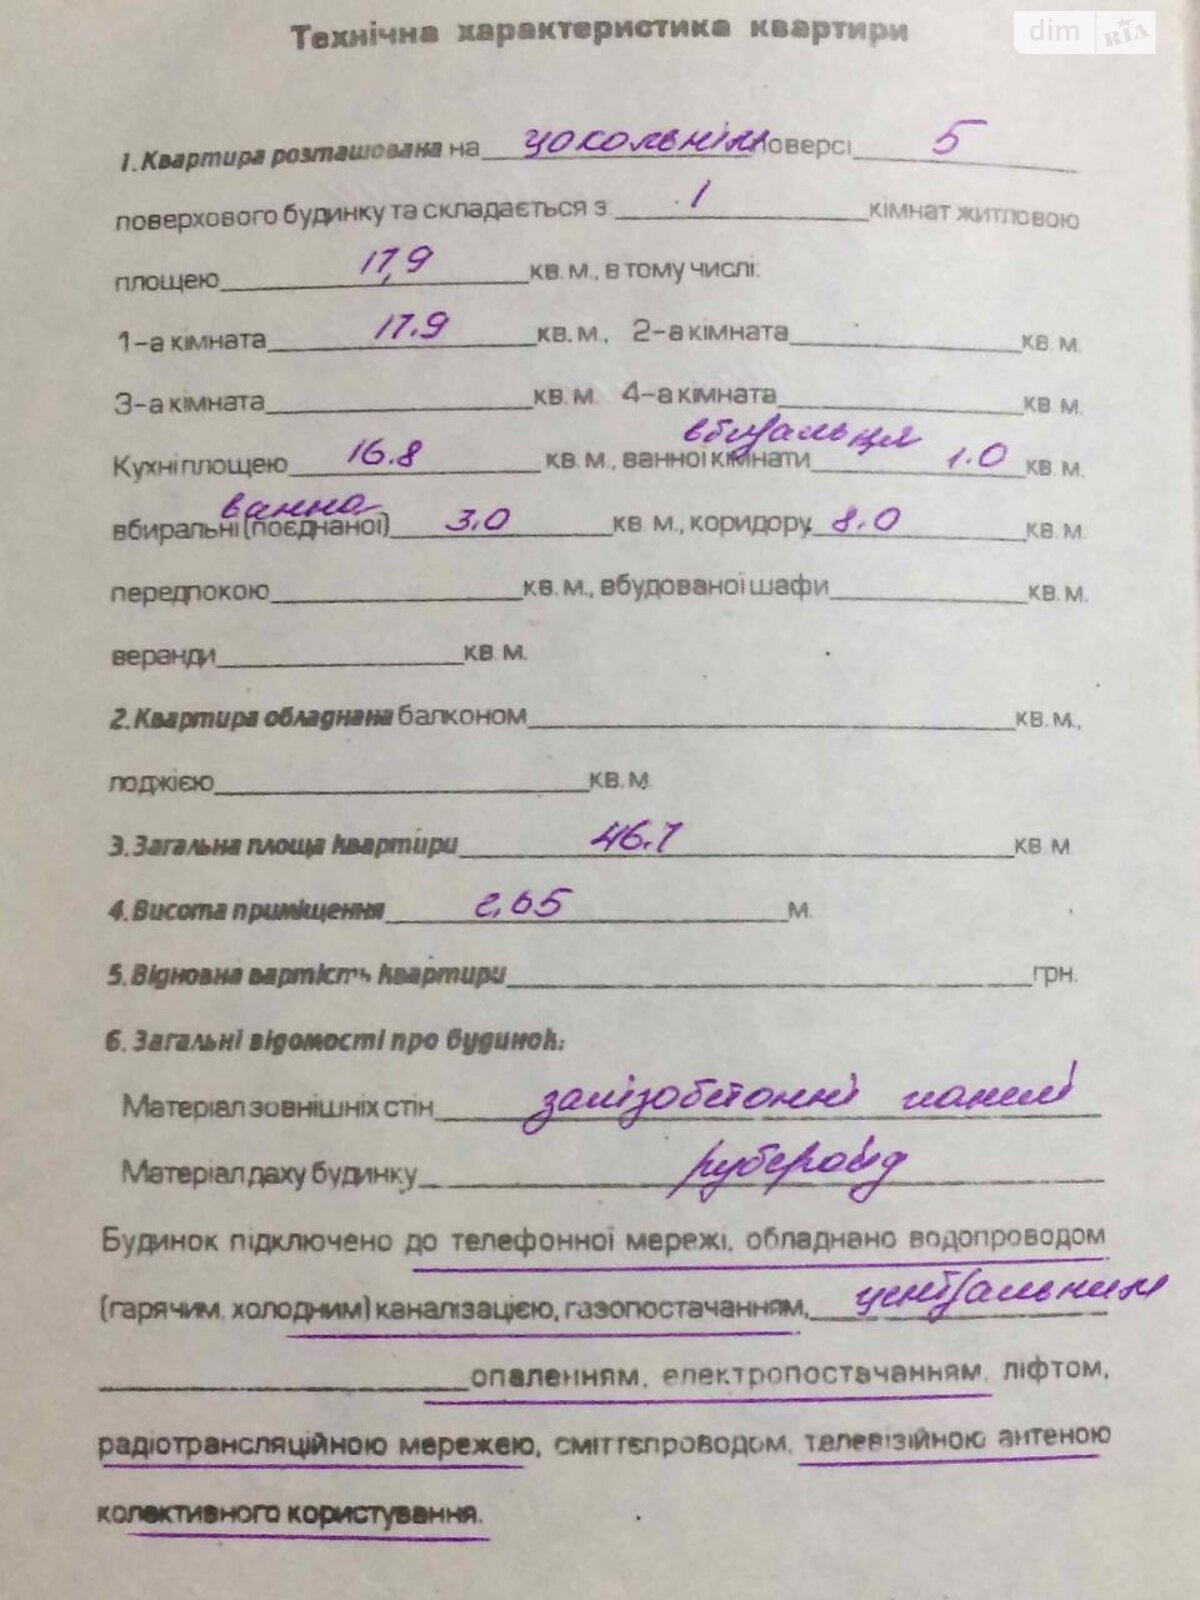 Технічна характеристика квартири
dim RIA
1. Квартира розташована на цокольнім поверсі 5
поверхового будинку та складається з 1 кімнат житловою
площею 17,9 кв. м., в тому числі:
1-а кімната 17.9 кв. м., 2-а кімната кв. м.
3-а кімната кв. м. 4-а кімната кв. м.
вбиральня
Кухні площею 16.8 кв. м., ванної кімнати 1.0 кв. м.
ванна
вбиральні (поєднаної) 3.0 кв. м., коридору 8.0 кв. м.
передпокою кв. м., вбудованої шафи кв. м.
веранди кв. м.
2. Квартира обладнана балконом кв. м.,
лоджією кв. м.
3. Загальна площа квартири 46.7 кв. м
4. Висота приміщення 2,65 м.
5. Відновна вартість квартири грн.
6. Загальні відомості про будинок:
Матеріал зовнішніх стін залізобетонні панелі
Матеріал даху будинку рубероїд
Будинок підключено до телефонної мережі, обладнано водопроводом
(гарячим, холодним) каналізацією, газопостачанням, центральним
опаленням, електропостачанням, ліфтом,
радіотрансляційною мережею, сміттєпроводом, телевізійною антеною
колективного користування.